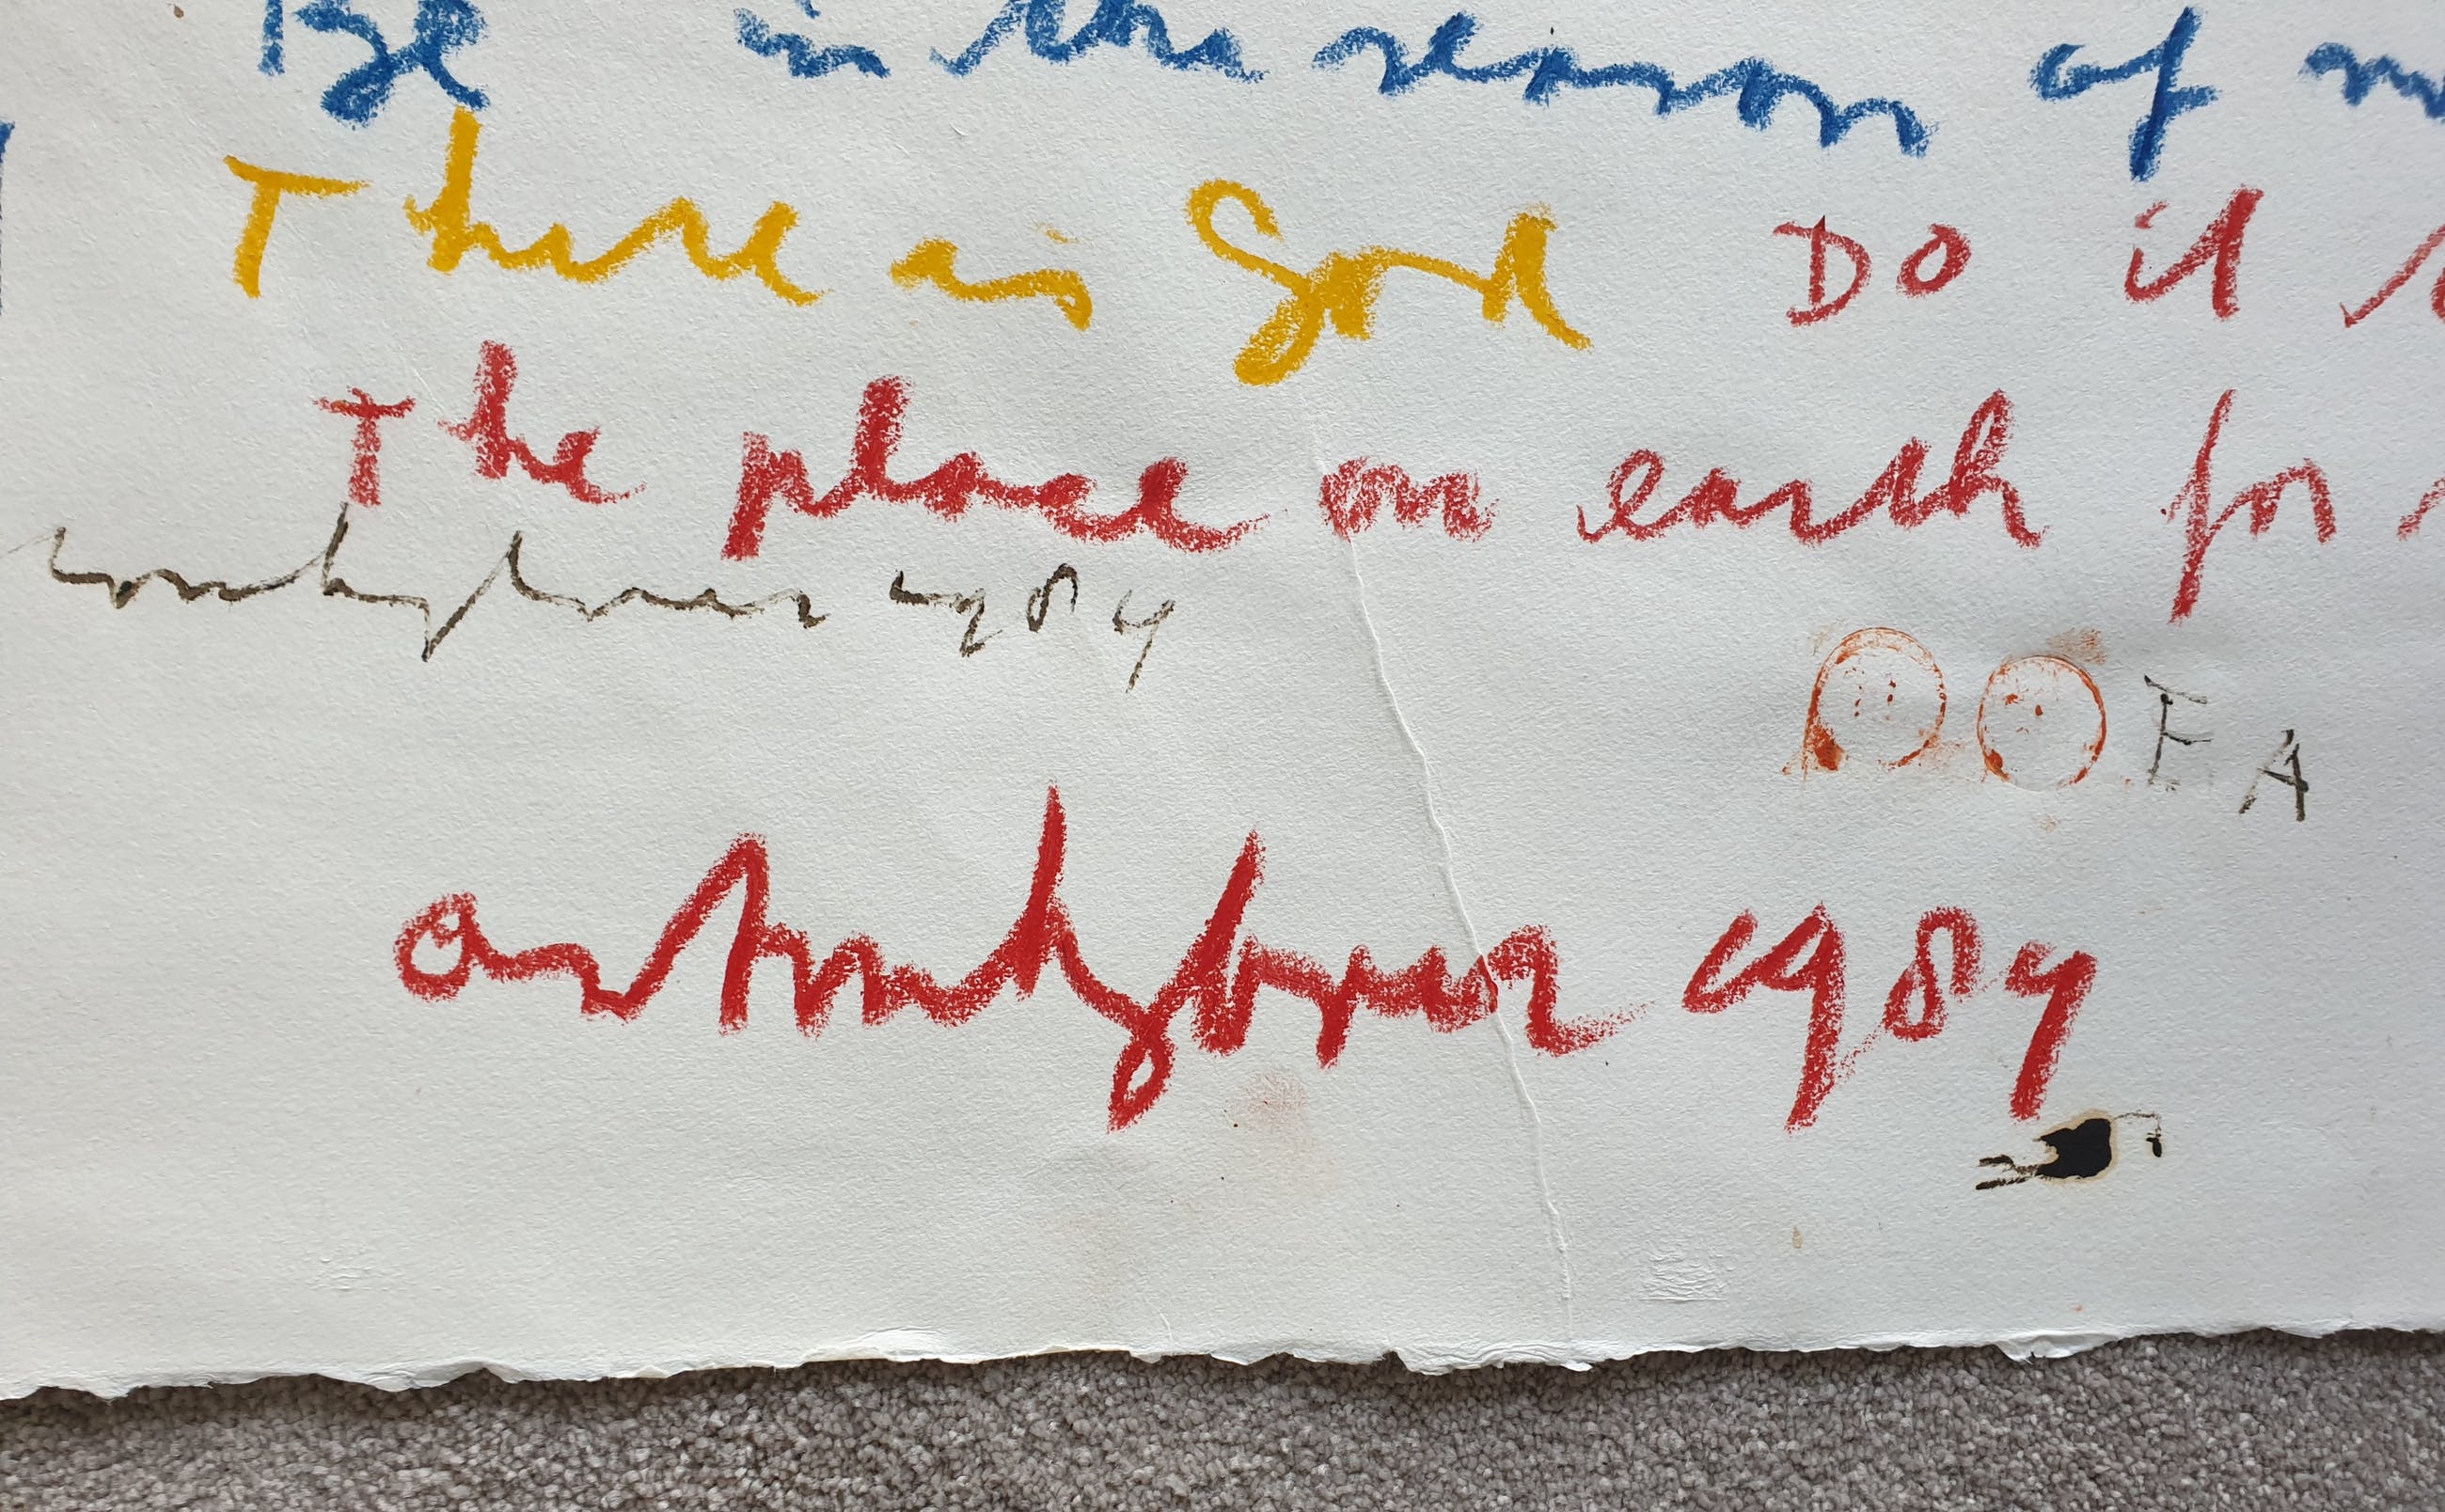 Be in the reason of
There is God Do it
The place on earth for
1984
E A
1984